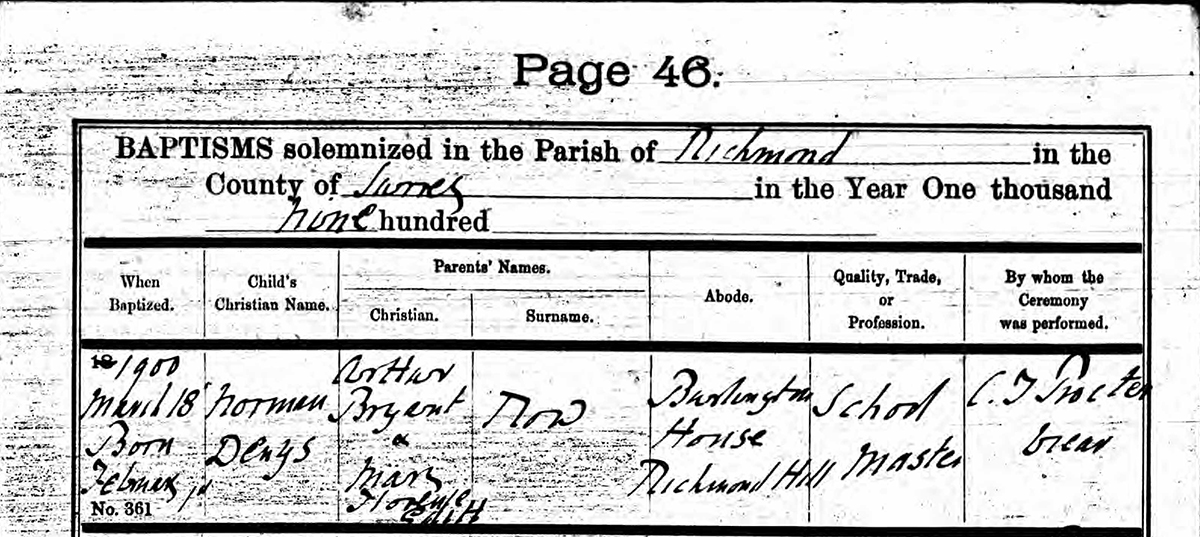 Page 46.
BAPTISMS solemnized in the Parish of Richmond in the
County of Surrey in the Year One thousand
nine hundred
When Baptized.
Child's Christian Name.
Parents' Names.
Christian.
Surname.
Abode.
Quality, Trade, or Profession.
By whom the Ceremony was performed.
18 1900
March 18
Born
February
No. 361
Norman
Denys
Arthur
Bryant
&
Mary
Florence
Edith
Burlington
House
Richmond Hill
School
Master
C. T. Procter
Vicar